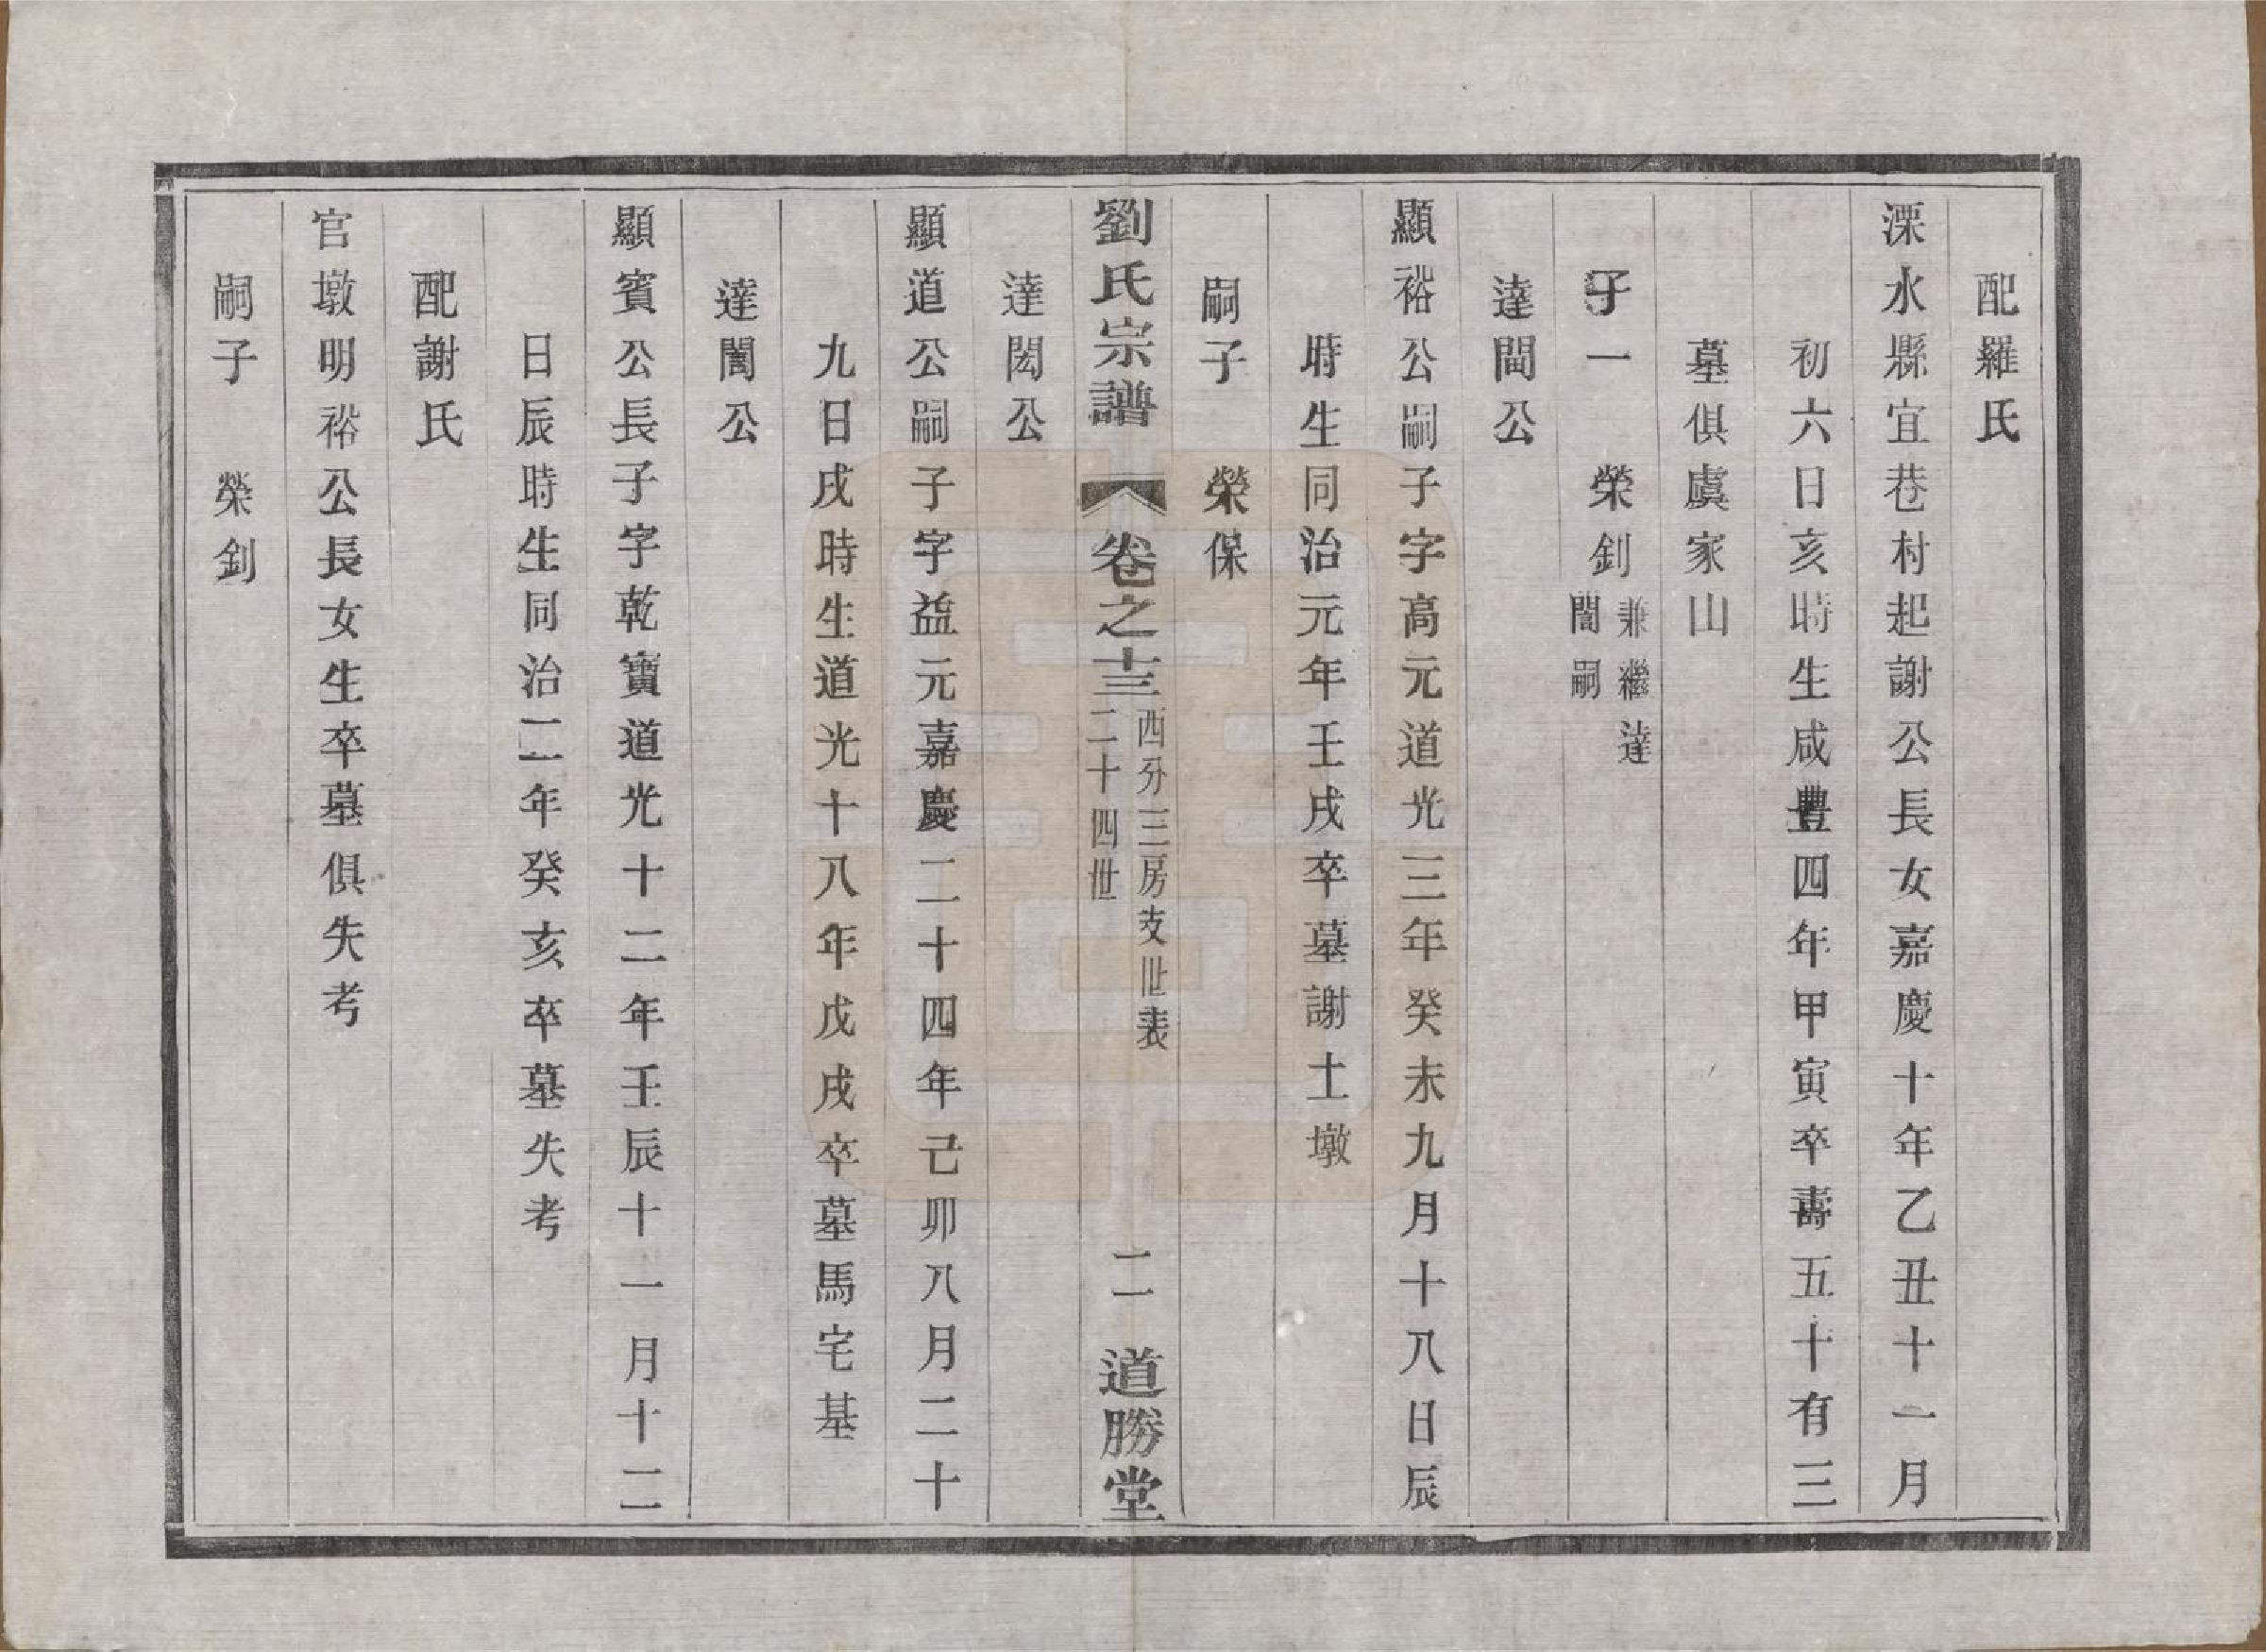 配羅氏
溧水縣宜巷村起謝公長女嘉慶十年乙丑十一月
初六日亥時生咸豐四年甲寅卒壽五十有三
墓俱虞家山
子一 榮釗兼繼達閶嗣
達閶公
顯裕公嗣子字高元道光三年癸未九月十八日辰
時生同治元年壬戌卒墓謝土墩
嗣子 榮保
劉氏宗譜 卷之十三 西分三房支世表 二十四世 二 道勝堂
達閎公
顯道公嗣子字益元嘉慶二十四年己卯八月二十
九日戌時生道光十八年戊戌卒墓馬宅基
達閶公
顯賓公長子字乾寶道光十二年壬辰十一月十二
日辰時生同治二年癸亥卒墓失考
配謝氏
官墩明裕公長女生卒墓俱失考
嗣子 榮釗